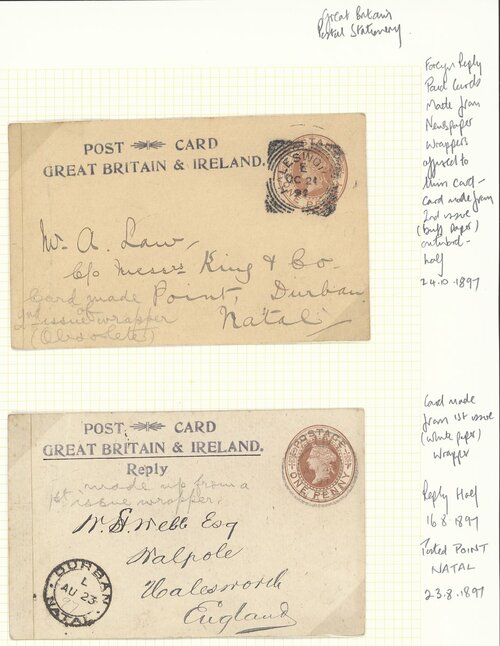 Great Britain
Postal Stationery
Foreign Reply
Paid Cards
Made from
Newspaper
Wrappers
affixed to
thin card -
card made from
2nd issue
(buff paper)
outward -
half
24.10.1897
POST CARD
GREAT BRITAIN & IRELAND.
E
OC 21
Mr A. Law,
c/o Messrs King & Co.
Point, Durban
Natal
Card made of
2nd issue wrapper
(Obsolete)
Card made
from 1st issue
(white paper)
wrapper
Reply Half
16.8.1897
Posted POINT
NATAL
23.8.1897
POST CARD
GREAT BRITAIN & IRELAND.
Reply
made up from a
1st issue wrapper.
POSTAGE
ONE PENNY
W.S. Webb Esq
Walpole
Halesworth
England
DURBAN
L
AU 23
97
NATAL